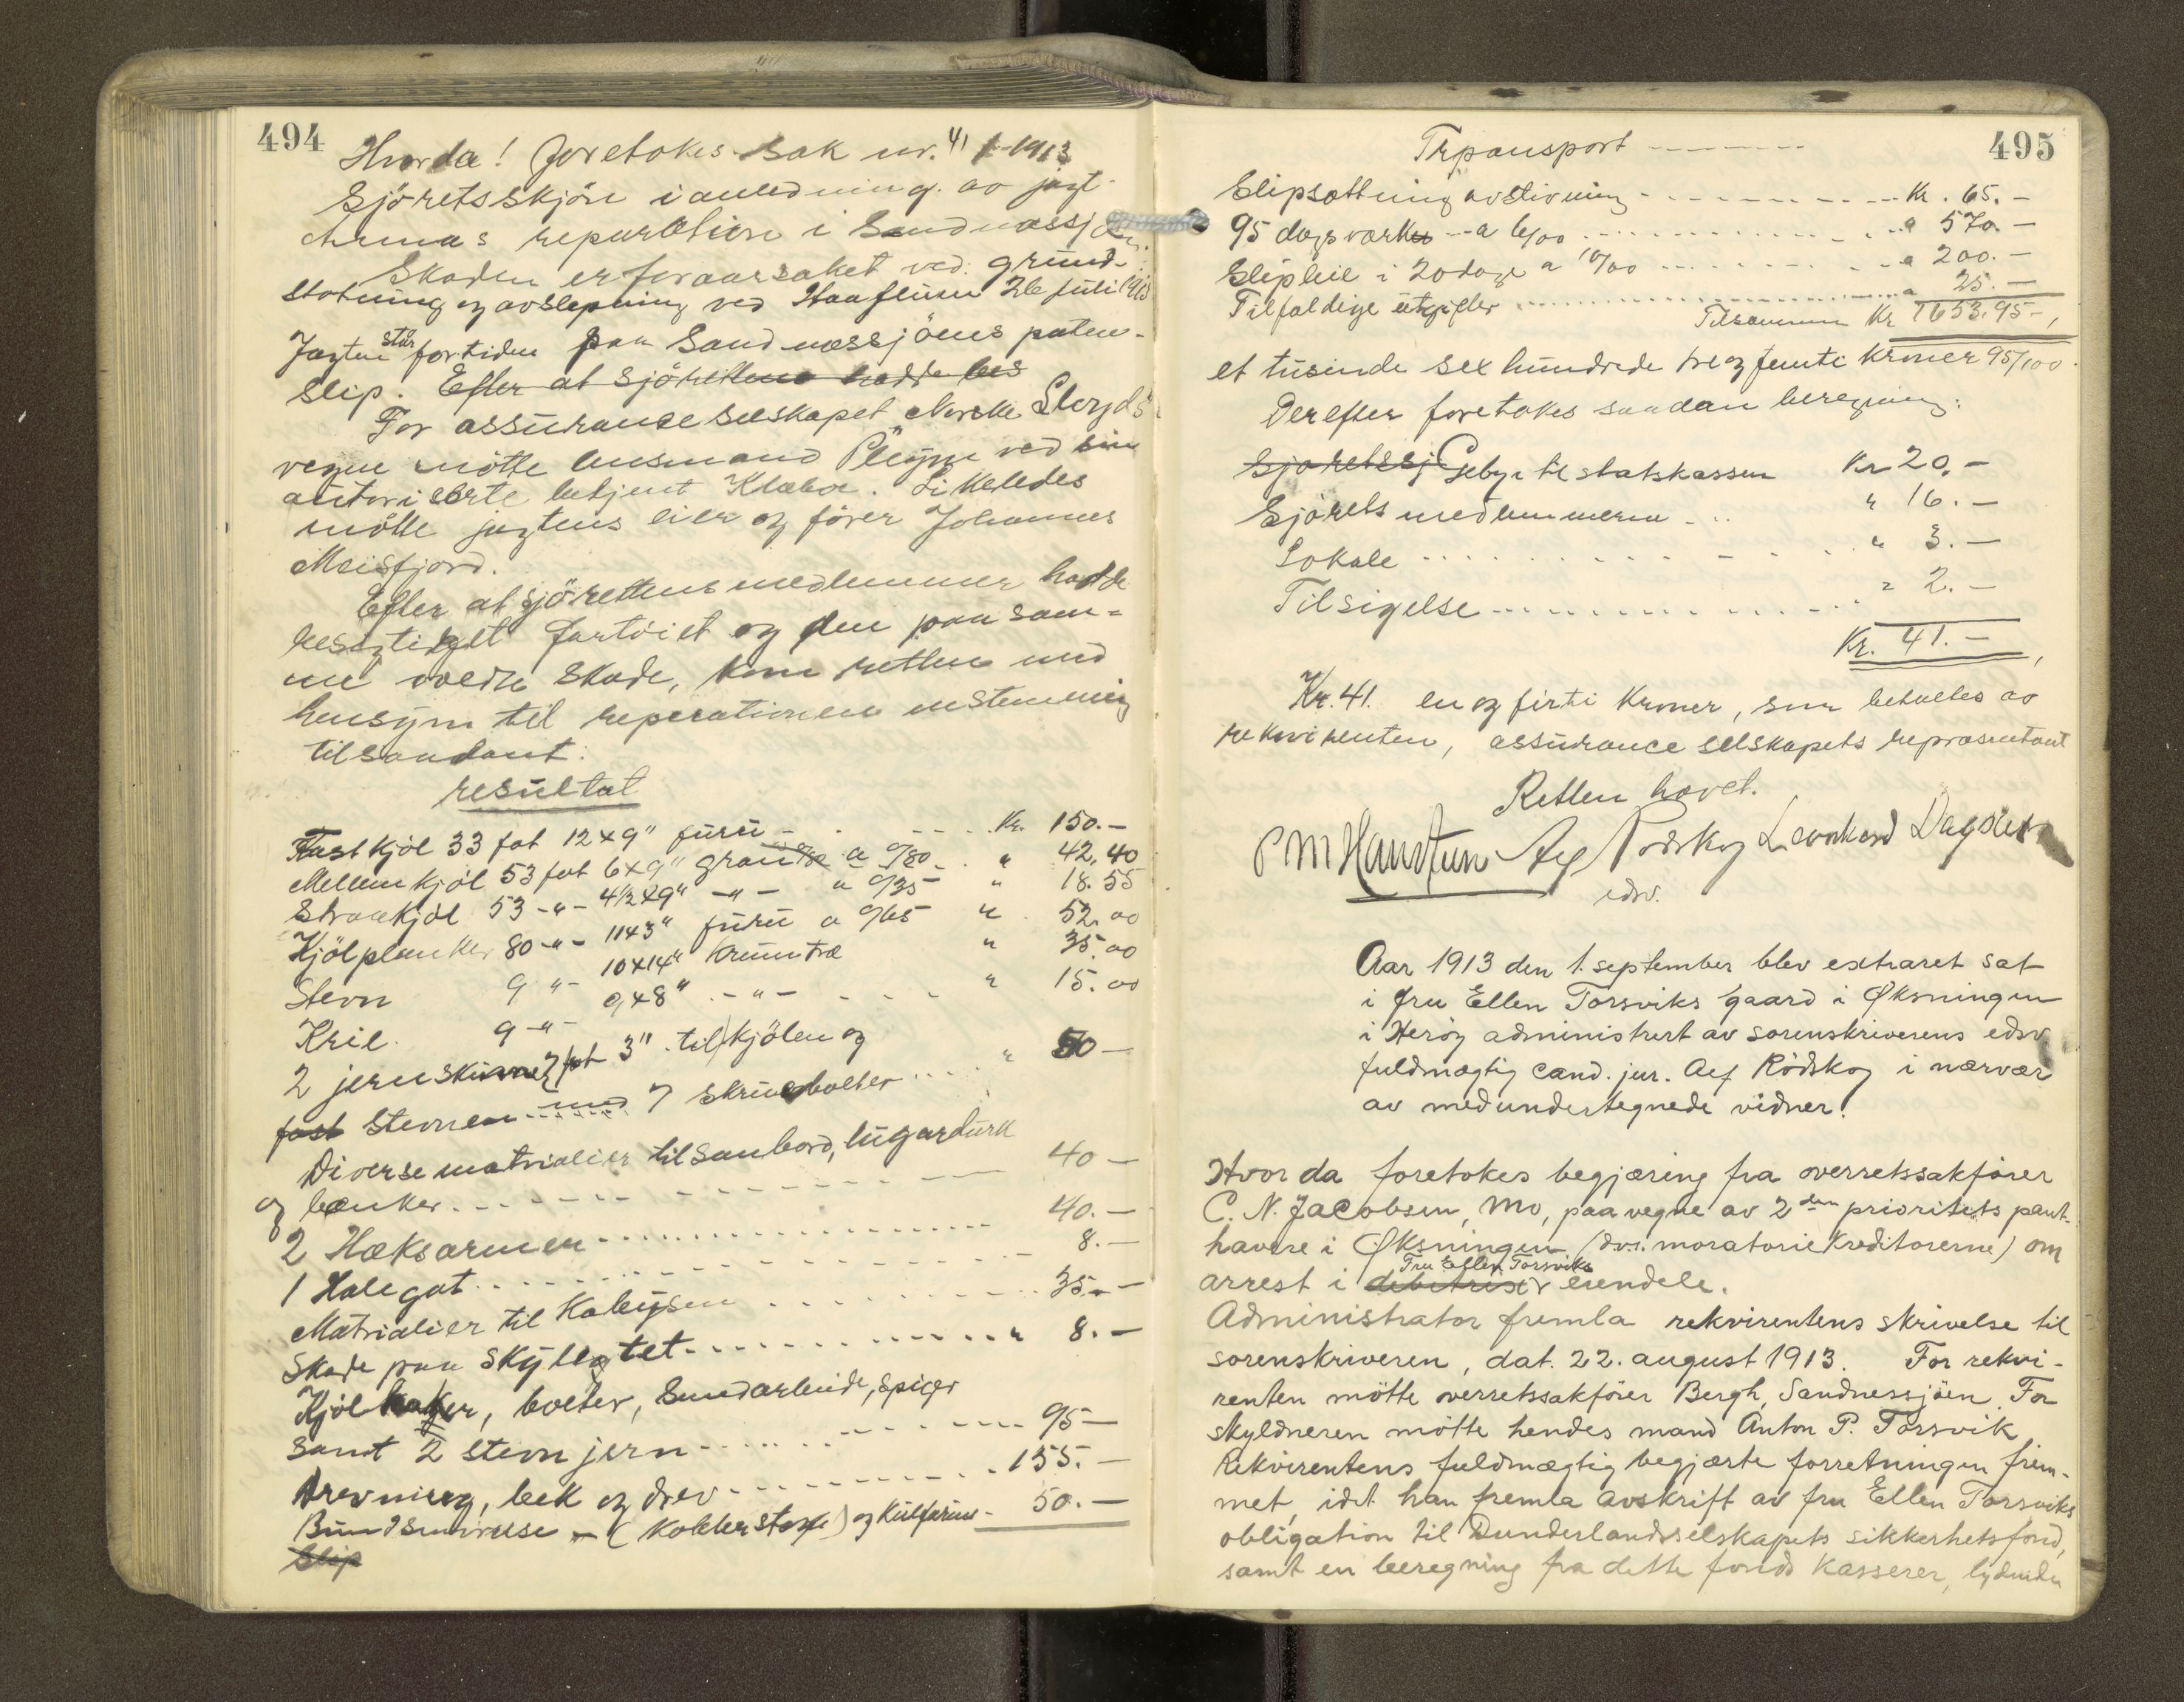 494
Hvorda! foretokes sak nr. 41 1913
Sjöretsskjön i anledning av jagt
Arnas reparation i Sandnessjøen.
Skaden er foraarsaket ved grund-
stötning og avslepning ved Haaflesen 26 juli 1913
Jagten står for tiden paa Sandnessjöens paten-
slip. Efter at sjörettens hadde bes
For assuranceselskapet Norske Lloyds
vegne mötte lensmand Pleym ved sin
autoriserte betjent Klæboe. Likeledes
mötte jagtens eier og förer Johannes
Meisfjord.
Efter at sjörettens medlemmer hadde
besigtiget fartöiet og den paa sam-
me voldte skade, kom retten med
hensyn til reperationen enstemmig
til saadant:
resultat
Fast kjöl 33 fot 12x9" furu - . - - . Kr. 150.-
Mellemkjöl 53 fot 6x9" gran a 0/80 . " 42,40
Straakjöl 53 -"- 4 1/2x9" -"- a 0/35 " 18.55
Kjölplanker 80 -"- 11x3" furu a 0/65 " 52.00
Stevn 9 "- 10x14" Krumtræ " 35.00
Kril. 9 -"- 9x8" . -"- - . . - " 15.00
2 jernskinner 7 fot 3" til kjölen og
fast stevnen med 7 skruebolter .... " 50 -
Diverse matrialier til sanbord, lugardurk
og bænker. - - - - - - - - - 40 -
2 Hæksarmer - - - - - - - - 40. -
1 Halegat . - - - - - - - - 8. -
Matrialier til Kabysen . . . . . . . . . 35. -
Skade paa skylegtet - - - - - - - " 8. -
Kjölhaker, bolter, Smedarbeide, spiger
samt 2 stevnjern - - - - - - - 95 -
Drevning, bek og drev - - - - - - 155. -
Bundsmörelse - (Kobberstoff) og Kulfarve - 50. -
Slip
495
Trpansport - - - - - -
Slipsætning avstivning - - - - - - - Kr. 65. -
95 dagsværker a 6/00 - - - - - - " 570. -
Slipleie i 20 dage a 10/00 - - - - - " 200. -
Tilfældige utgifter - - - - - - - " 25. -
Tilsammen Kr 1653.95 -,
et tusinde sex hundrede tre og femti Kroner 95/100.
Derefter foretokes saadan beregning:
Sjøretssj Gebyr til statskassen Kr 20. -
Sjörets medlemmerne - .. " 16. -
Lokale - . . . . . . - - . . " 3. -
Tilsigelse - - - - - - - - - " 2. -
Kr. 41. -,
Kr. 41. en og firti Kroner, som betaltes av
rekvirenten, assurance selskapets repræsentant
Retten hævet.
P M Handtun Alf Rødskog Leonhard Dagslet
edsv.
Aar 1913 den 1. september blev extraret sat
i fru Ellen Torsviks gaard i Øksningen
i Herøy administrert av sorenskriverens edsv.
fuldmægtig cand. jur. Alf Rödskog i nærvær
av medundertegnede vidner:
Hvor da foretokes begjæring fra overretssakfører
C. N. Jacobsen, Mo, paa vegne av 2den prioritets pant-
havere i Øksningen (dvs. moratoriekreditorerne) om
Fru Ellen Torsviks
arrest i debitrix'r eiendele.
Administrator fremla rekvirentens skrivelse til
sorenskriveren, dat. 22. august 1913. For rekvi-
renten mötte overretssakfører Bergh, Sandnessjöen. For
skyldneren mötte hendes mand Anton P. Torsvik
Rekvirentens fuldmægtig begjærte forretningen frem-
met, idet han fremla avskrift av fru Ellen Torsviks
obligation til Dunderlandsselskapets sikkerhetsfond,
samt en beregning fra dette fonds Kasserer, lydende